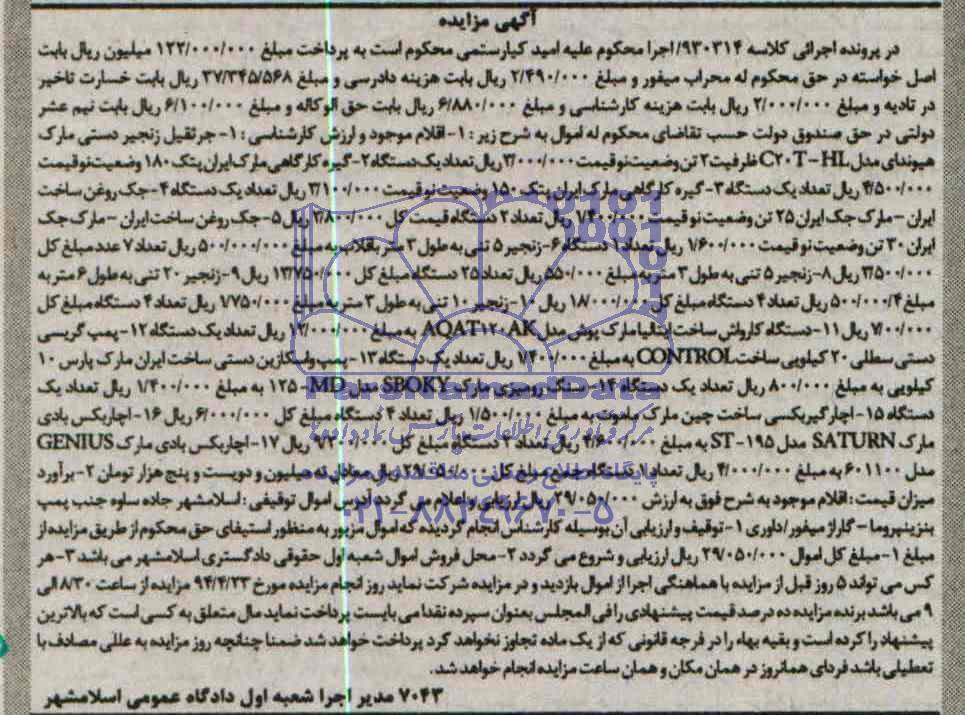 آگهی مزایده
در پرونده اجرائی کلاسه ۹۳۰۳۱۴/اجرا محکوم علیه امید کیارستمی محکوم است به پرداخت مبلغ ۱۲۲/۰۰۰/۰۰۰ میلیون ریال بابت
اصل خواسته در حق محکوم له محراب میفور و مبلغ ۲/۴۹۰/۰۰۰ ریال بابت هزینه دادرسی و مبلغ ۳۷/۳۴۵/۵۶۸ ریال بابت خسارت تاخیر
در تادیه و مبلغ ۲/۰۰۰/۰۰۰ ریال بابت هزینه کارشناسی و مبلغ ۶/۸۸۰/۰۰۰ ریال بابت حق الوکاله و مبلغ ۶/۱۰۰/۰۰۰ ریال بابت نیم عشر
دولتی در حق صندوق دولت حسب تقاضای محکوم له اموال به شرح زیر : ۱-اقلام موجود و ارزش کارشناسی : ۱-جرثقیل زنجیر دستی مارک
هیوندای مدل C۲۰T-HL ظرفیت ۲ تن وضعیت نو قیمت ۳/۰۰۰/۰۰۰ ریال تعداد یک دستگاه ۲-گیره کارگاهی مارک ایران پتک ۱۸۰ وضعیت نو قیمت
۴/۵۰۰/۰۰۰ ریال تعداد یک دستگاه ۳-گیره کارگاهی مارک ایران پتک ۱۵۰ وضعیت نو قیمت ۳/۱۰۰/۰۰۰ ریال تعداد یک دستگاه ۴-جک روغن ساخت
ایران -مارک جک ایران ۲۵ تن وضعیت نو قیمت ۱/۴۰۰/۰۰۰ ریال تعداد ۲ دستگاه قیمت کل ۲/۸۰۰/۰۰۰ ریال ۵-جک روغن ساخت ایران -مارک جک
ایران ۳۰ تن وضعیت نو قیمت ۱/۶۰۰/۰۰۰ ریال تعداد ۱ دستگاه ۶-زنجیر ۵ تنی به طول ۳ متر باقلاب به مبلغ ۵۰۰/۰۰۰/۰۰۰ ریال تعداد ۷ عدد مبلغ کل
۳/۵۰۰/۰۰۰ ریال ۸-زنجیر ۵ تنی به طول ۳ متر به مبلغ ۵۵۰/۰۰۰ ریال تعداد ۲۵ دستگاه مبلغ کل ۱۳/۷۵۰/۰۰۰ ریال ۹-زنجیر ۲۰ تنی به طول ۶ متر به
مبلغ ۵۰۰/۰۰۰/۴ ریال تعداد ۴ دستگاه مبلغ کل ۱۸/۰۰۰/۰۰۰ ریال ۱۰-زنجیر ۱۰ تنی به طول ۳ متر به مبلغ ۱/۷۵۰/۰۰۰ ریال تعداد ۴ دستگاه مبلغ کل
۷/۰۰۰/۰۰۰ ریال ۱۱-دستگاه کارواش ساخت ایتالیا مارک پوش مدل AQAT۱۲۰AK به مبلغ ۱۲/۰۰۰/۰۰۰ ریال تعداد یک دستگاه ۱۲-پمپ گریسی
دستی سطلی ۲۰ کیلویی ساخت CONTROL به مبلغ ۱/۴۰۰/۰۰۰ ریال تعداد یک دستگاه ۱۳-پمپ واسگازین دستی ساخت ایران مارک پارس ۱۰
کیلویی به مبلغ ۸۰۰/۰۰۰ ریال تعداد یک دستگاه ۱۴-سنگ رومیزی مارک SBOKY مدل MD-۱۲۵ به مبلغ ۱/۴۰۰/۰۰۰ ریال تعداد یک
دستگاه ۱۵-اچار گیربکسی ساخت چین مارک به مبلغ ۱/۵۰۰/۰۰۰ ریال تعداد ۴ دستگاه مبلغ کل ۶/۰۰۰/۰۰۰ ریال ۱۶-اچاربکس بادی
مارک SATURN مدل ST-۱۹۵ به مبلغ ۴/۶۰۰/۰۰۰ ریال تعداد ۲ دستگاه مبلغ کل ۹/۲۰۰/۰۰۰ ریال ۱۷-اچاربکس بادی مارک GENIUS
مدل ۶۰۱۱۰۰ به مبلغ ۴/۰۰۰/۰۰۰ ریال تعداد ۱ دستگاه جمع مبلغ کل ریال معادل نه میلیون و دویست و پنج هزار تومان ۲-برآورد
میزان قیمت : اقلام موجود به شرح فوق به ارزش ۲۹/۰۵۰/۰۰۰ ریال ارزیابی و اعلام می گردد آدرس اموال توقیفی : اسلامشهر جاده ساوه جنب پمپ
بنزینیروما - گاراژ میفور /داوری ۱-توقیف و ارزیابی آن بوسیله کارشناس انجام گردیده که اموال مزبور به منظور استیفای حق محکوم از طریق مزایده از
مبلغ ۱-مبلغ کل اموال ۲۹/۰۵۰/۰۰۰ ریال ارزیابی و شروع می گردد ۲-محل فروش اموال شعبه اول حقوقی دادگستری اسلامشهر می باشد ۳-هر
کس می تواند ۵ روز قبل از مزایده با هماهنگی اجرا از اموال بازدید و در مزایده شرکت نماید روز انجام مزایده مورخ ۹۴/۴/۲۳ مزایده از ساعت ۸/۳۰ الی
۹ می باشد برنده مزایده ده درصد قیمت پیشنهادی را فی المجلس بعنوان سپرده نقدا می بایست پرداخت نماید مال متعلق به کسی است که بالاترین
پیشنهاد را کرده است و بقیه بهاء را در فرجه قانونی که از یک ماده تجاوز نخواهد کرد پرداخت خواهد شد ضمنا چنانچه روز مزایده به عللی مصادف با
تعطیلی باشد فردای همانروز در همان مکان و همان ساعت مزایده انجام خواهد شد.
۷۰۴۳ مدیر اجرا شعبه اول دادگاه عمومی اسلامشهر
ParsNamadData
پایگاه اطلاع رسانی مناقصه و مزایده
۰۲۱-۸۸۳۴۹۶۷۰-۵